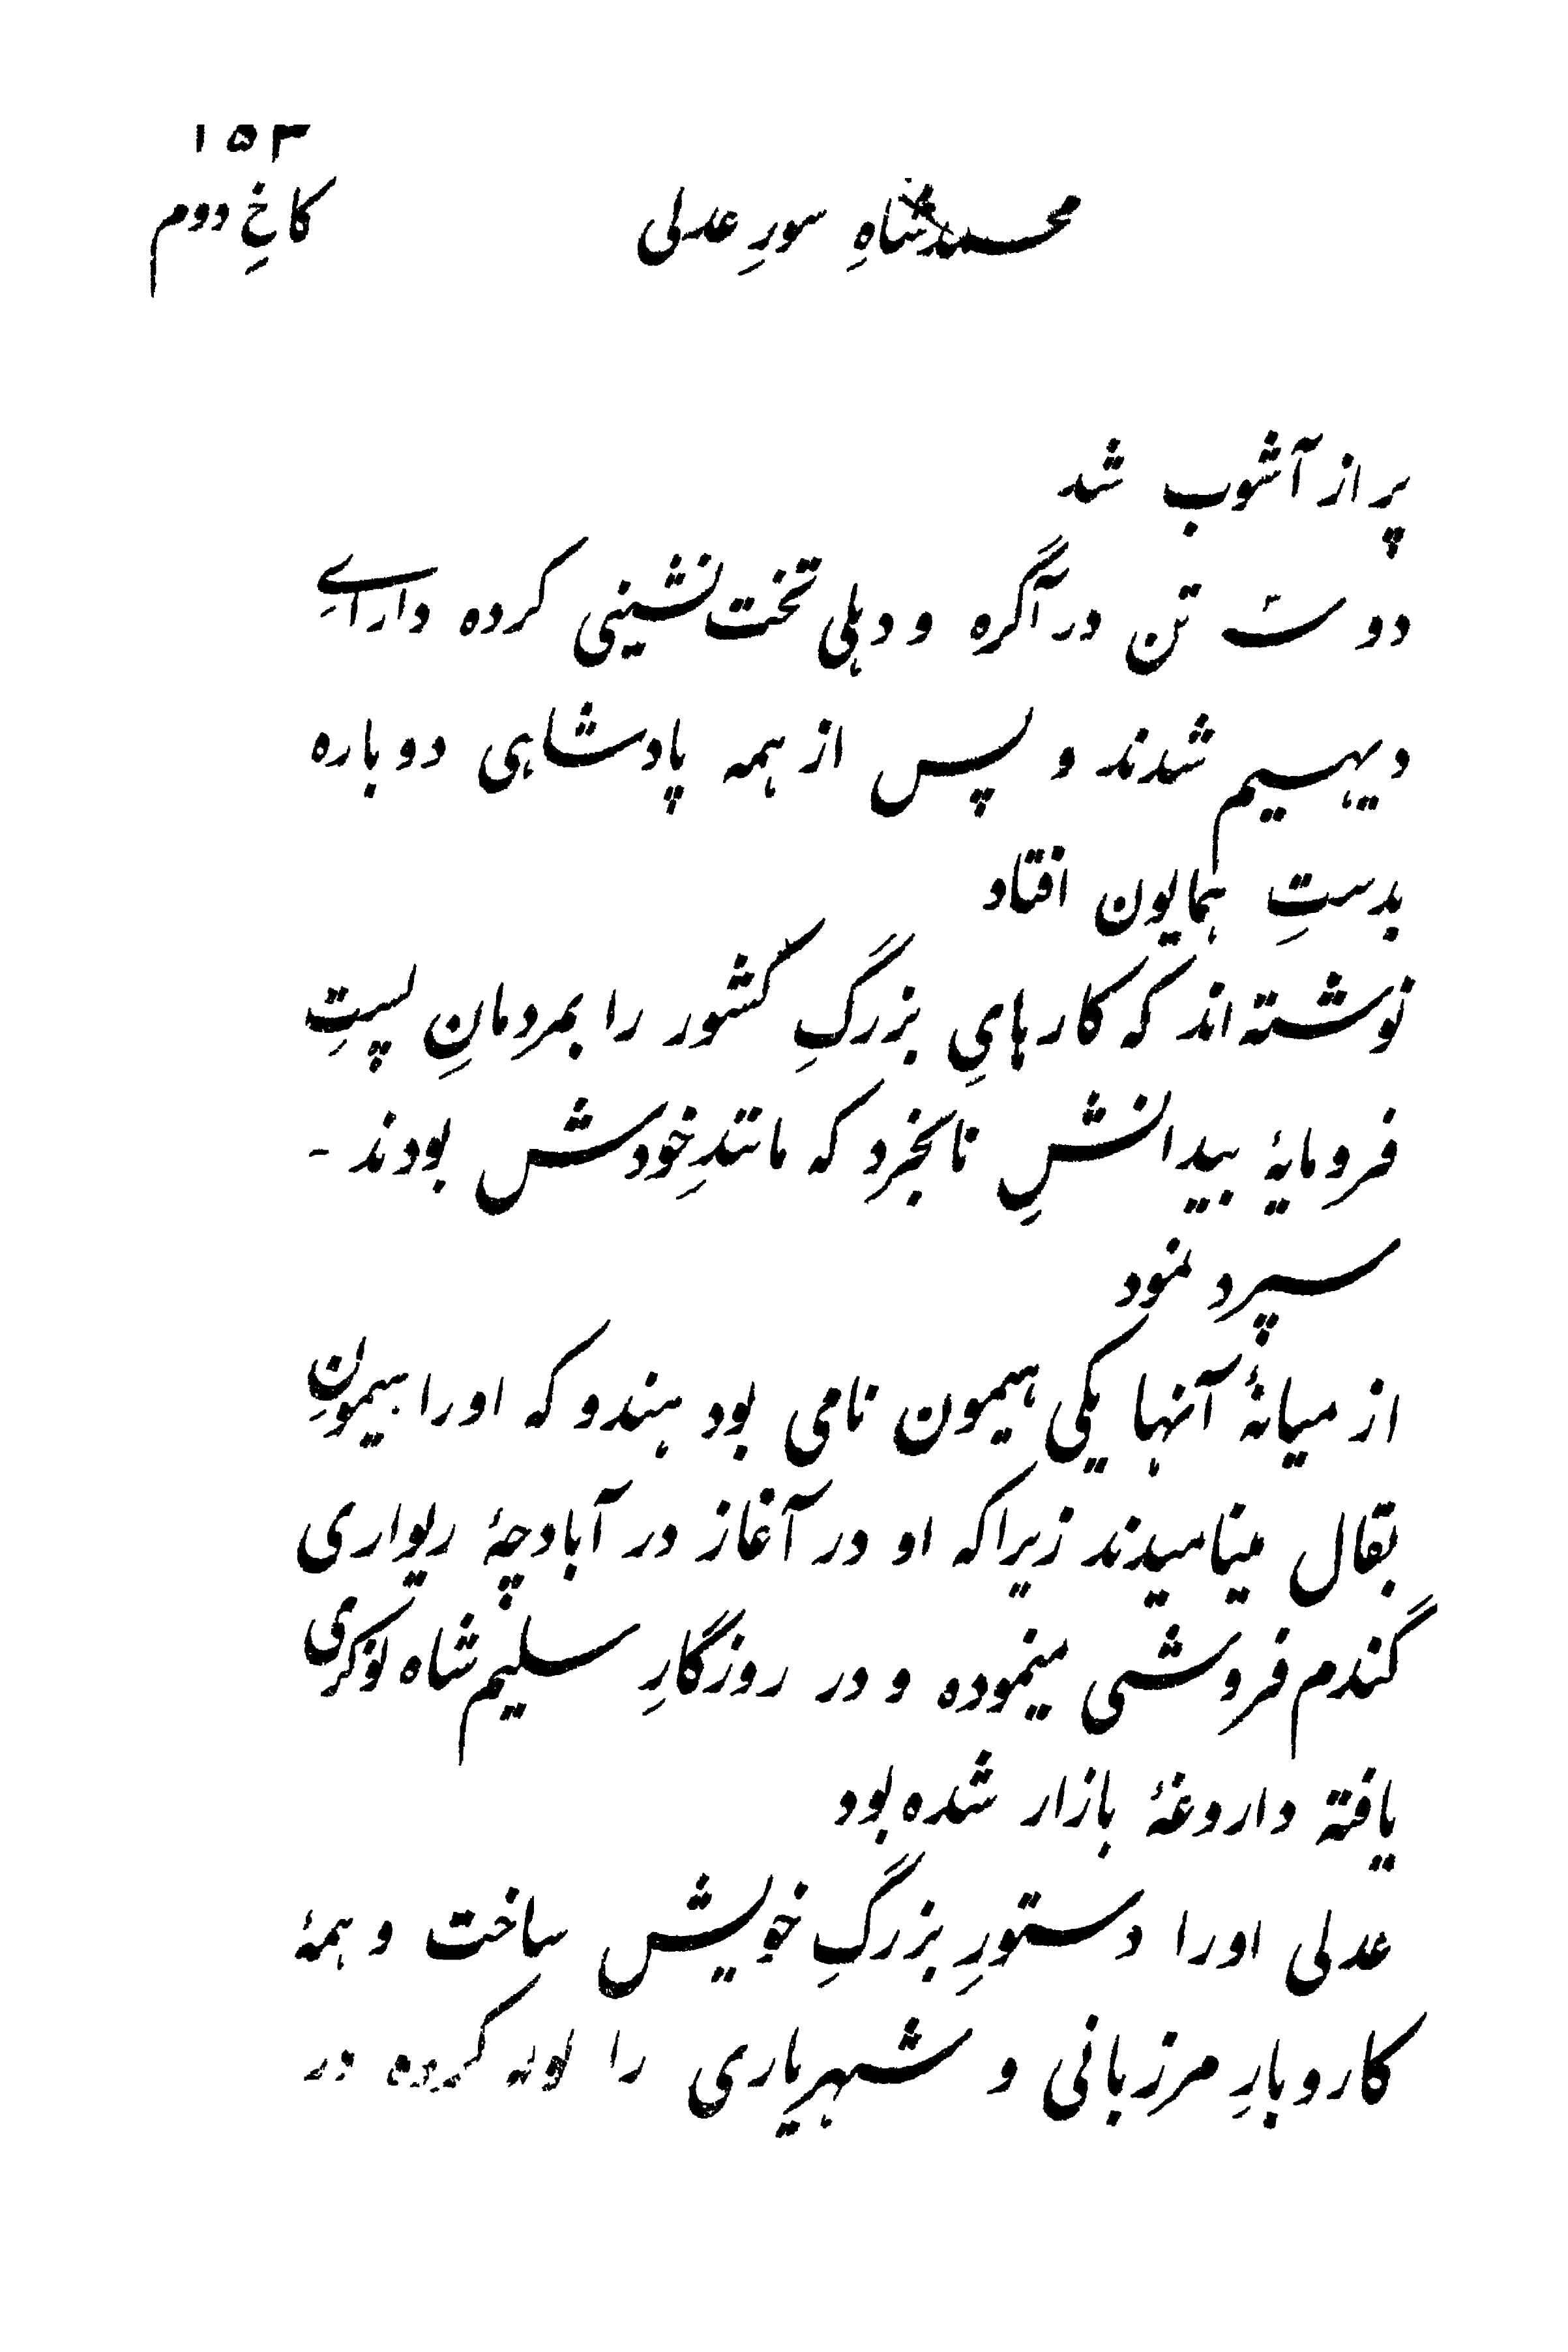 ۱۵۳
محمد شاهِ سورِ عدلی
کاخِ دوم
پر از آشوب شد
دو سه تن در آگره و دهلی تخت نشینی کرده دارایِ
دیهیم شدند و پس از همه پادشاهی دوباره
بدستِ همایون افتاد
نوشته‌اند که کارهایِ بزرگِ کشور را بمردمانِ پستِ
فرومایهٔ بیدانشِ نابخرد که مانندِ خودش بودند -
سپرد نمود
از میانهٔ آنها یکی هیمون نامی بود هندو که اورا هیمونِ
بقال مینامیدند زیراکه او در آغاز در آبادچهٔ ریواری
گندم فروشی مینموده و در روزگارِ سلیم شاه نوکری
یافته داروغهٔ بازار شده بود
عدلی اورا دستورِ بزرگِ خویش ساخت و همهٔ
کاروبارِ مرزبانی و شهریاری را کرده در